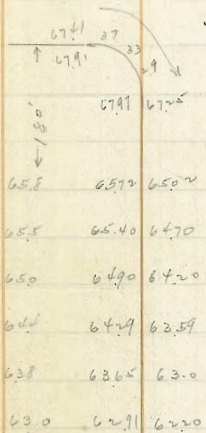 67.41 37
67.91 33
29
67.97 67.25
180'
65.8 65.72 65.02
65.5 65.40 64.70
65.0 64.90 64.20
64.4 64.29 63.59
63.8 63.65 63.0
63.0 62.91 62.20